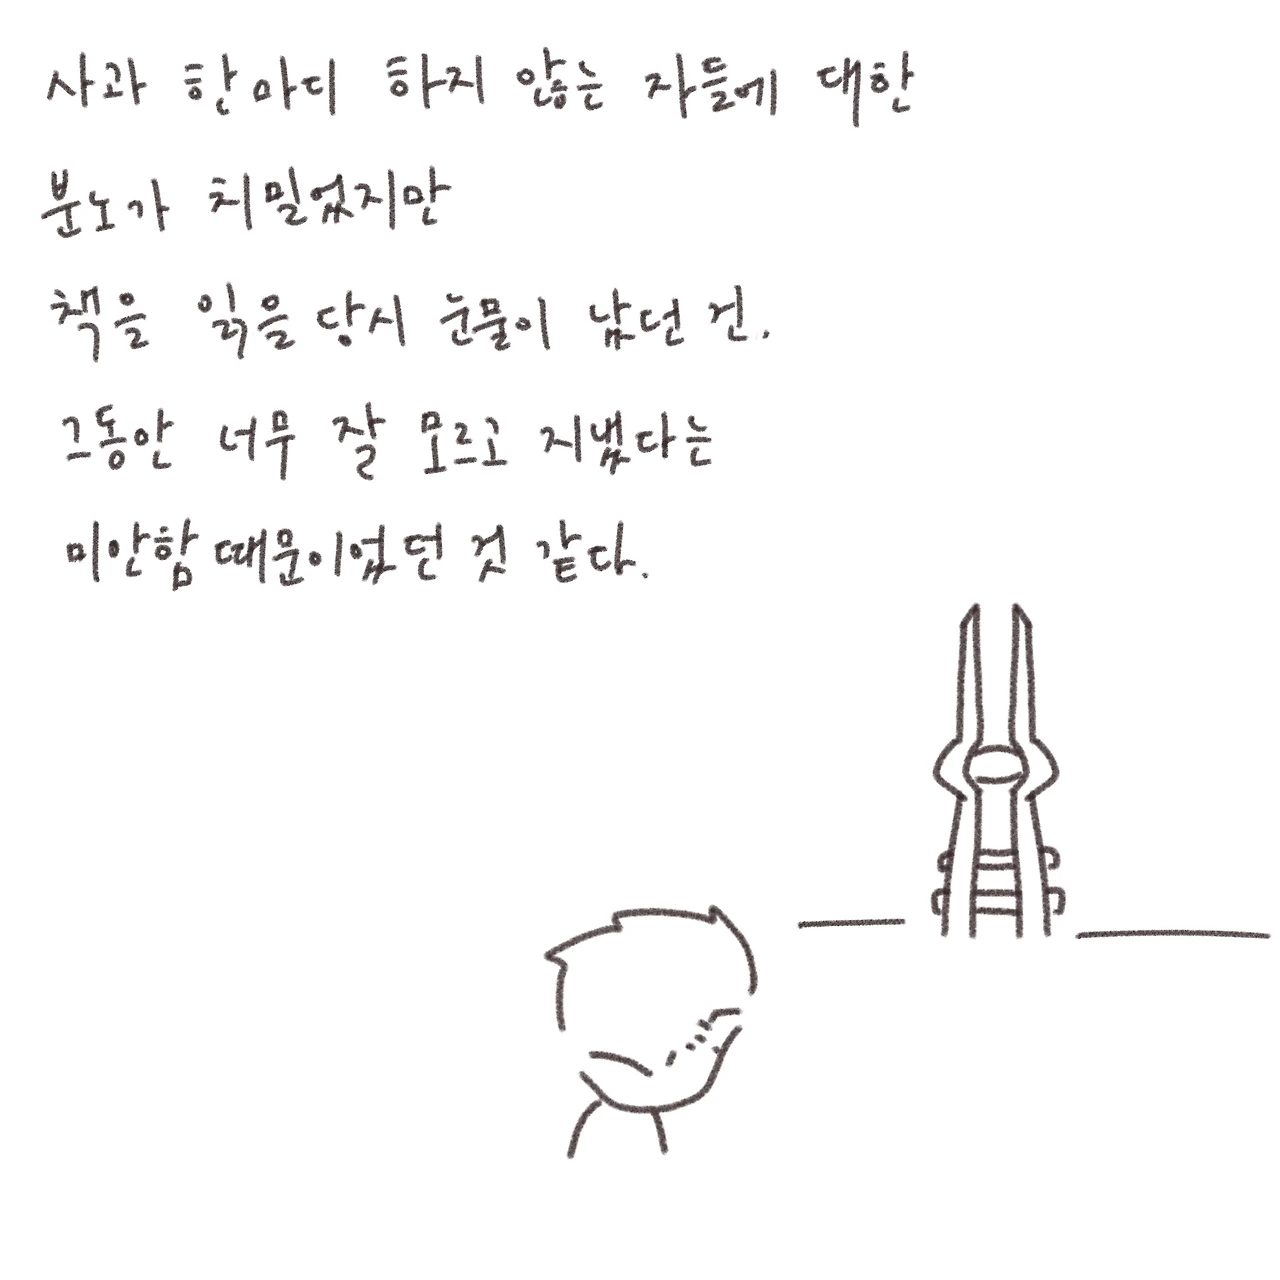 사과 한마디 하지 않는 자들에 대한
분노가 치밀었지만
책을 읽을 당시 눈물이 났던 건.
그동안 너무 잘 모르고 지냈다는
미안함 때문이었던 것 같다.